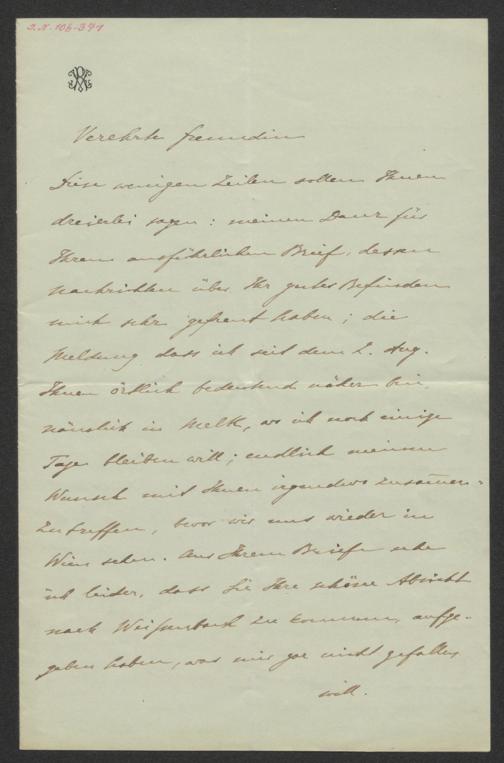 I.N. 106.371
Verehrte Freundin
Diese wenigen Zeilen sollen Ihnen
dreierlei sagen: meinen Dank für
Ihren ausführlichen Brief, dessen
Nachrichten über Ihr gutes Befinden
mich sehr gefreut haben; die
Meldung dass ich seit dem 2. Aug.
Ihnen örtlich bedeutend näher bin,
nämlich in Melk, wo ich noch einige
Tage bleiben will; endlich meinen
Wunsch mit Ihnen irgendwo zusammen-
zutreffen, bevor wir uns wieder in
Wien sehen. Aus Ihrem Briefe sehe
ich leider, dass Sie Ihre schöne Absicht
nach Weissenbach zu kommen, aufge-
geben haben, was mir gar nicht gefallen
will.